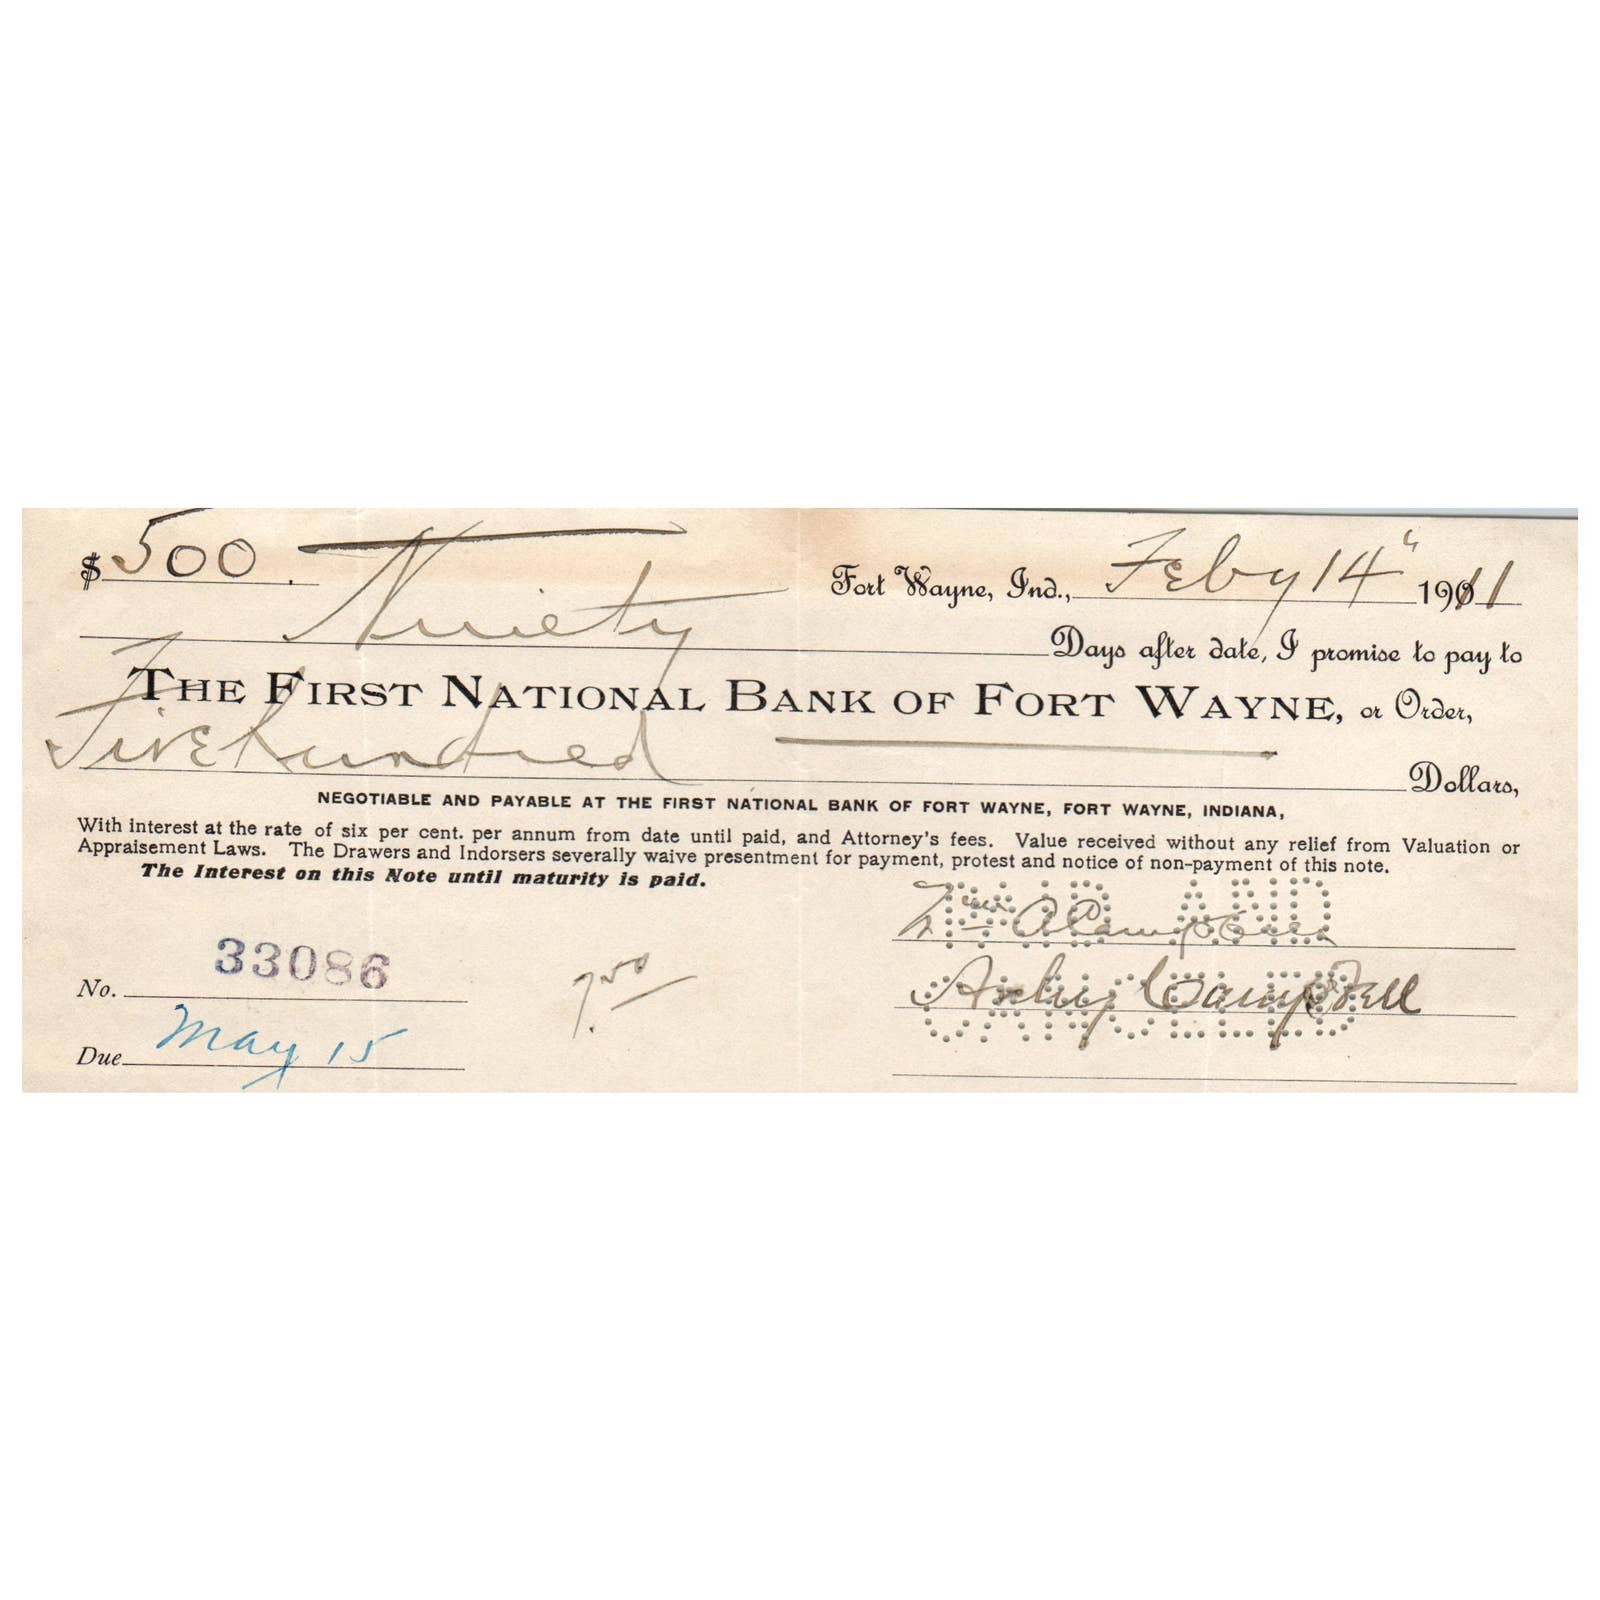 $ 500.
Fort Wayne, Ind., Feby 14" 1911
Ninety Days after date, I promise to pay to
THE FIRST NATIONAL BANK OF FORT WAYNE, or Order,
Five hundred Dollars,
NEGOTIABLE AND PAYABLE AT THE FIRST NATIONAL BANK OF FORT WAYNE, FORT WAYNE, INDIANA,
With interest at the rate of six per cent. per annum from date until paid, and Attorney's fees. Value received without any relief from Valuation or
Appraisement Laws. The Drawers and Indorsers severally waive presentment for payment, protest and notice of non-payment of this note.
The Interest on this Note until maturity is paid.
Campbell
PAID AND
No. 33086
7.50
Campbell
CANCELED
Due May 15